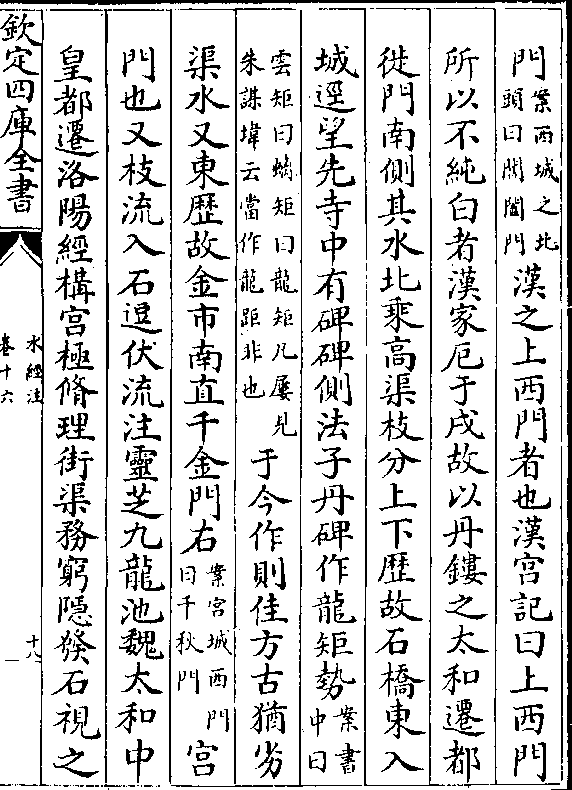 門案西城之北頭曰閶闔門漢之上西門者也漢宫記曰上西門
所以不純白者漢家厄于戌故以丹鏤之太和遷都
徙門南側其水北乘高渠枝分上下歴故石橋東入
城逕望先寺中有碑碑側法子丹碑作龍矩勢案書中曰
雲矩曰螭矩曰龍矩凡屢見朱謀㙔云當作龍距非也于今作則佳方古猶劣
渠水又東歴故金市南直千金門右案宫城西門曰千秋門宫
門也又枝流入石逗伏流注靈芝九龍池魏太和中
皇都遷洛陽經構宫極脩理街渠務窮隠發石視之
欽定四庫全書
水經注
卷十六
十八